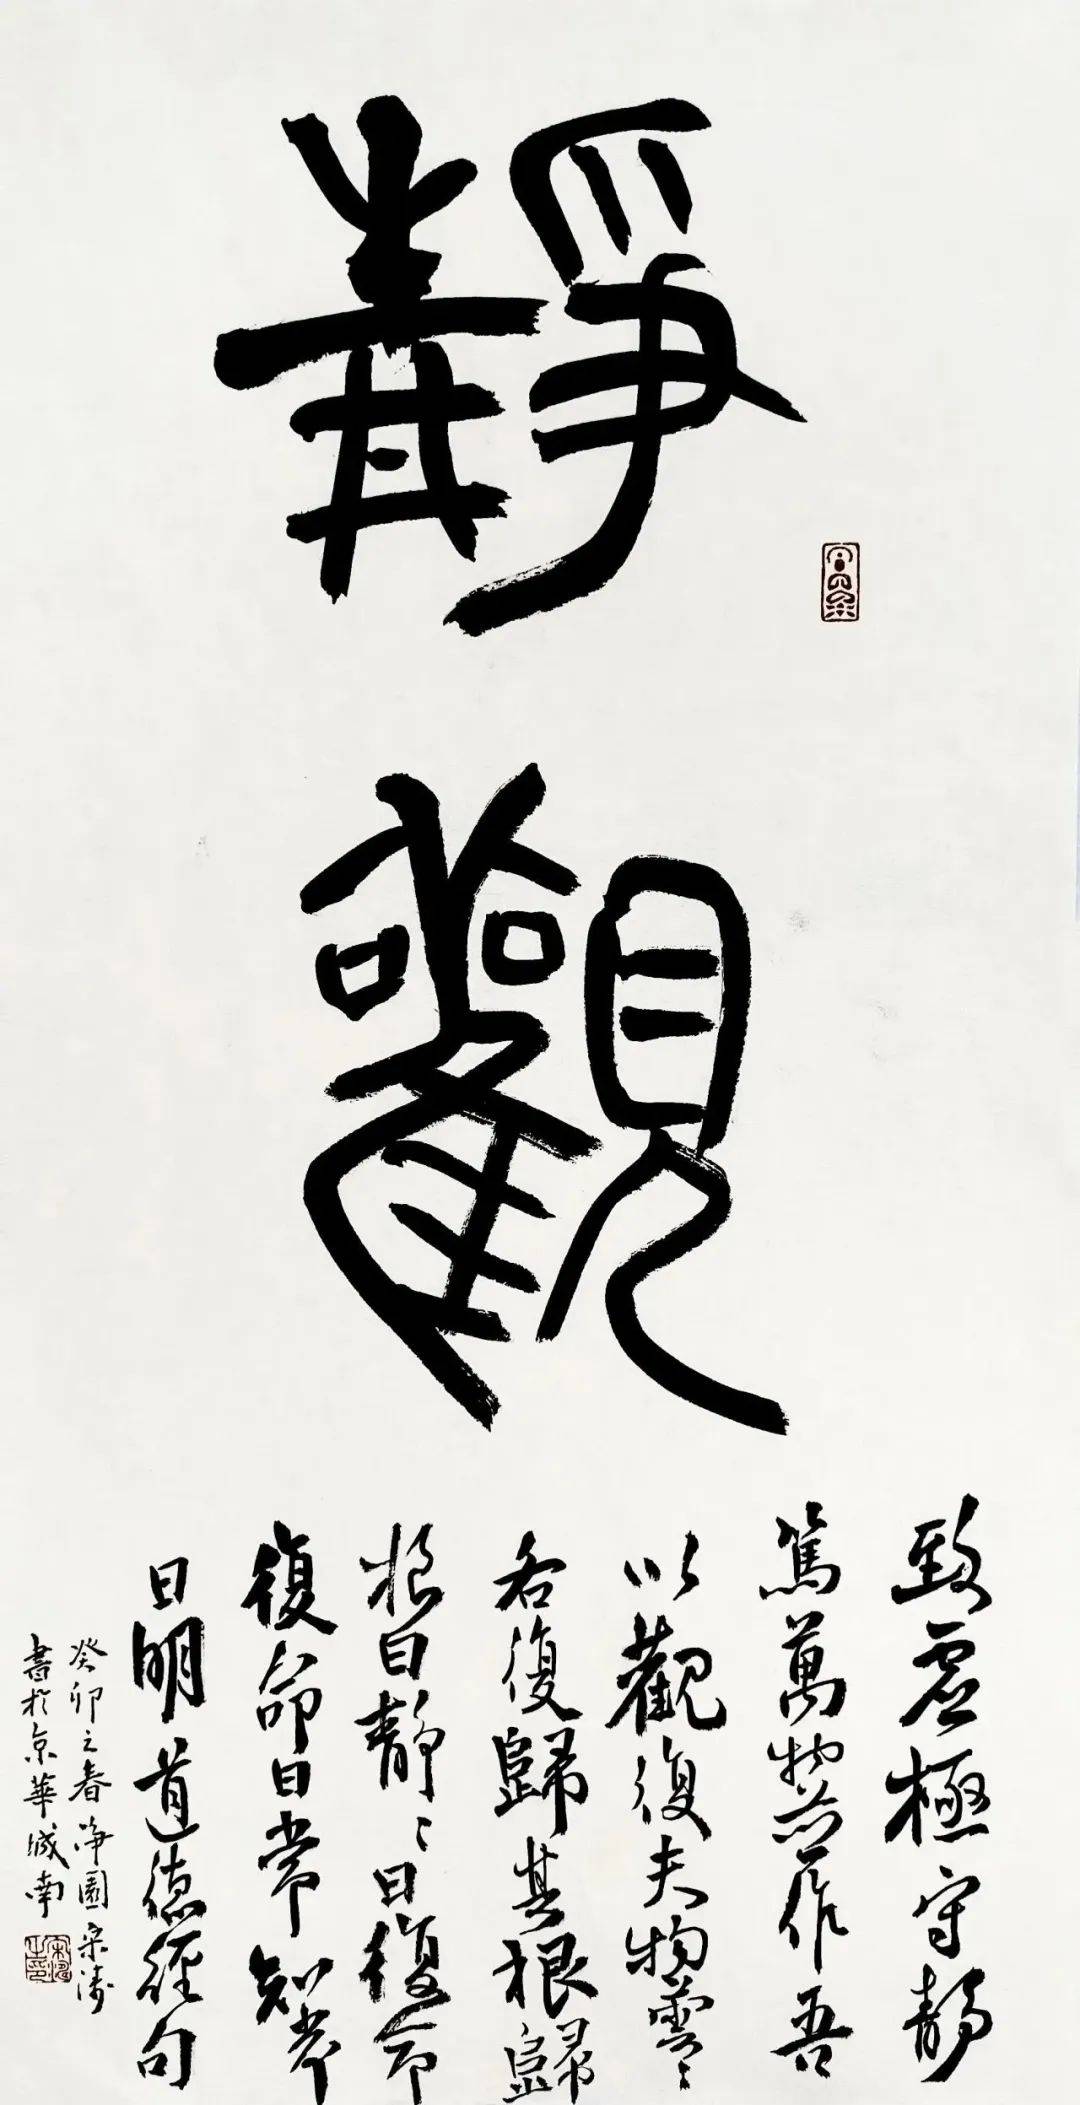 靜
觀
致虛極守靜
篤萬物並作吾
以觀復夫物蕓〻
各復歸其根歸
根曰靜〻曰復命
復命曰常知常
曰明道德經句
癸卯之春淨園宋濤
書於京華城南
宋濤之印